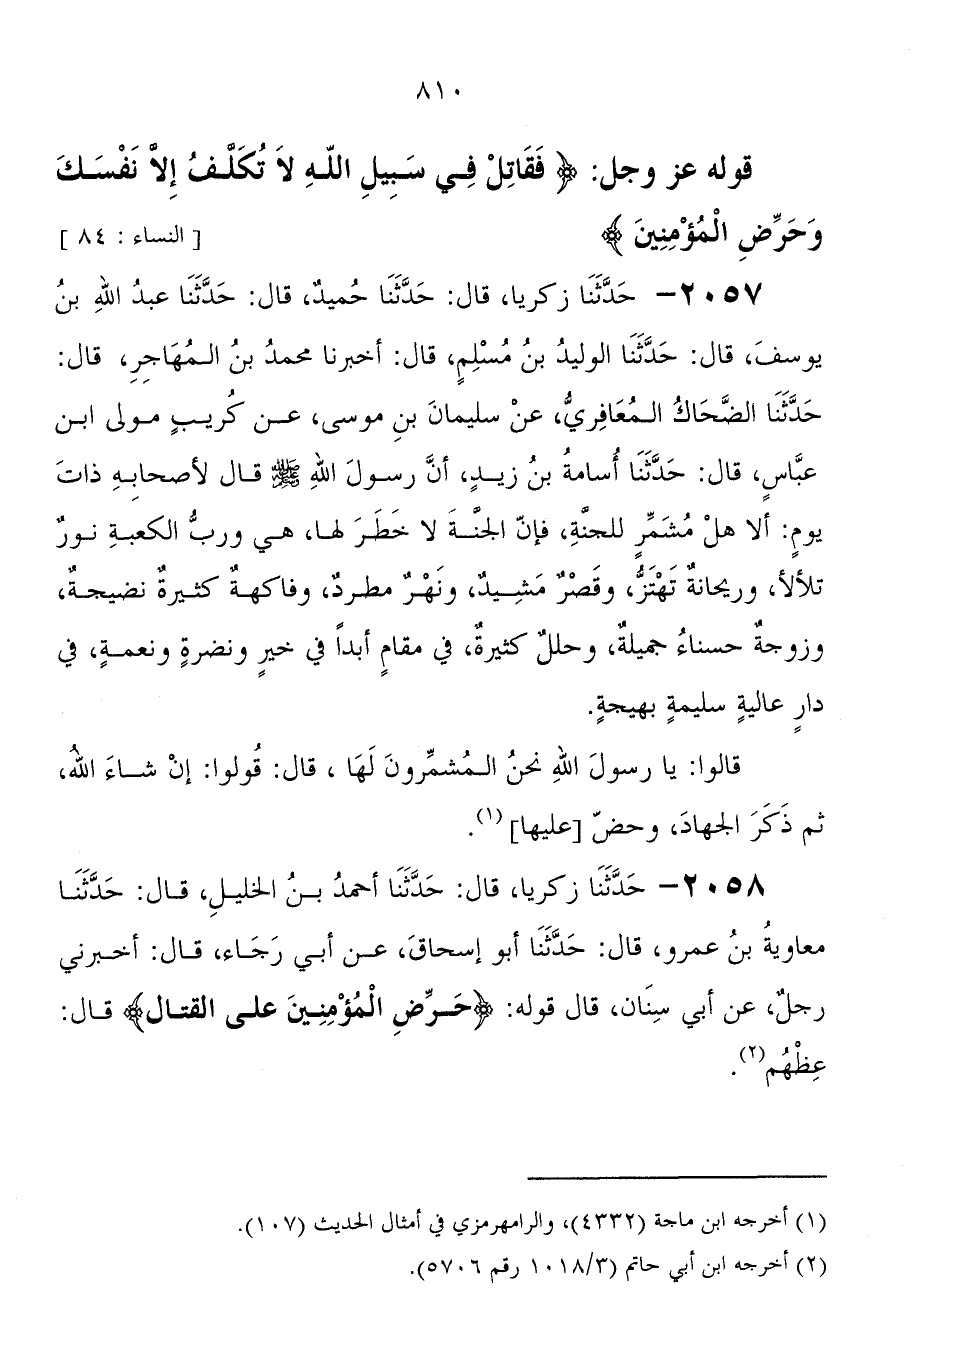 ٨١٠
قوله عز وجل: ﴿ فَقَاتِلْ فِي سَبِيلِ اللّهِ لاَ تُكَلَّفُ إِلاَّ نَفْسَكَ
وَحَرِّضِ الْمُؤْمِنِينَ ﴾ [ النساء : ٨٤ ]
٢٠٥٧- حَدَّثَنَا زكريا، قال: حَدَّثَنَا حُميدٌ، قال: حَدَّثَنَا عبدُ اللهِ بنُ
يوسفَ، قال: حَدَّثَنَا الوليدُ بنُ مُسْلِمٍ، قال: أخبرنا محمدُ بنُ المُهَاجرِ، قال:
حَدَّثَنَا الضَّحَاكُ المُعَافِريُّ، عنْ سليمانَ بنِ موسى، عن كُريبٍ مولى ابن
عبَّاسٍ، قال: حَدَّثَنَا أُسامةُ بنُ زيدٍ، أنَّ رسولَ اللهِ ﷺ قال لأصحابهِ ذاتَ
يومٍ: ألا هلْ مُشَمِّرٍ للجنَّةِ، فإنّ الجنَّةَ لا خَطَرَ لها، هي وربُّ الكعبةِ نورٌ
تلألأ، وريحانةٌ تَهْتَزُّ، وقَصْرٌ مَشِيدٌ، ونَهْرٌ مطردٌ، وفاكهةٌ كثيرةٌ نضيجةٌ،
وزوجةٌ حسناءُ جميلةٌ، وحللٌ كثيرةٌ، في مقامٍ أبداً في خيرٍ ونضرةٍ ونعمةٍ، في
دارٍ عاليةٍ سليمةٍ بهيجةٍ.
قالوا: يا رسولَ اللهِ نحنُ المُشمِّرونَ لَهَا ، قال: قُولوا: إنْ شاءَ اللهُ،
ثم ذَكَرَ الجهادَ، وحضّ [عليها] (١).
٢٠٥٨- حَدَّثَنَا زكريا، قال: حَدَّثَنَا أحمدُ بنُ الخليلِ، قال: حَدَّثَنَا
معاويةُ بنُ عمرو، قال: حَدَّثَنَا أبو إسحاقَ، عن أبي رَجَاء، قال: أخبرني
رجلٌ، عن أبي سِنَان، قال قوله: ﴿حَرِّضِ الْمُؤْمِنِينَ على القتال﴾ قال:
عِظْهُم(٢).
(١) أخرجه ابن ماجة (٤٣٣٢)، والرامهرمزي في أمثال الحديث (١٠٧).
(٢) أخرجه ابن أبي حاتم (١٠١٨/٣ رقم ٥٧٠٦).